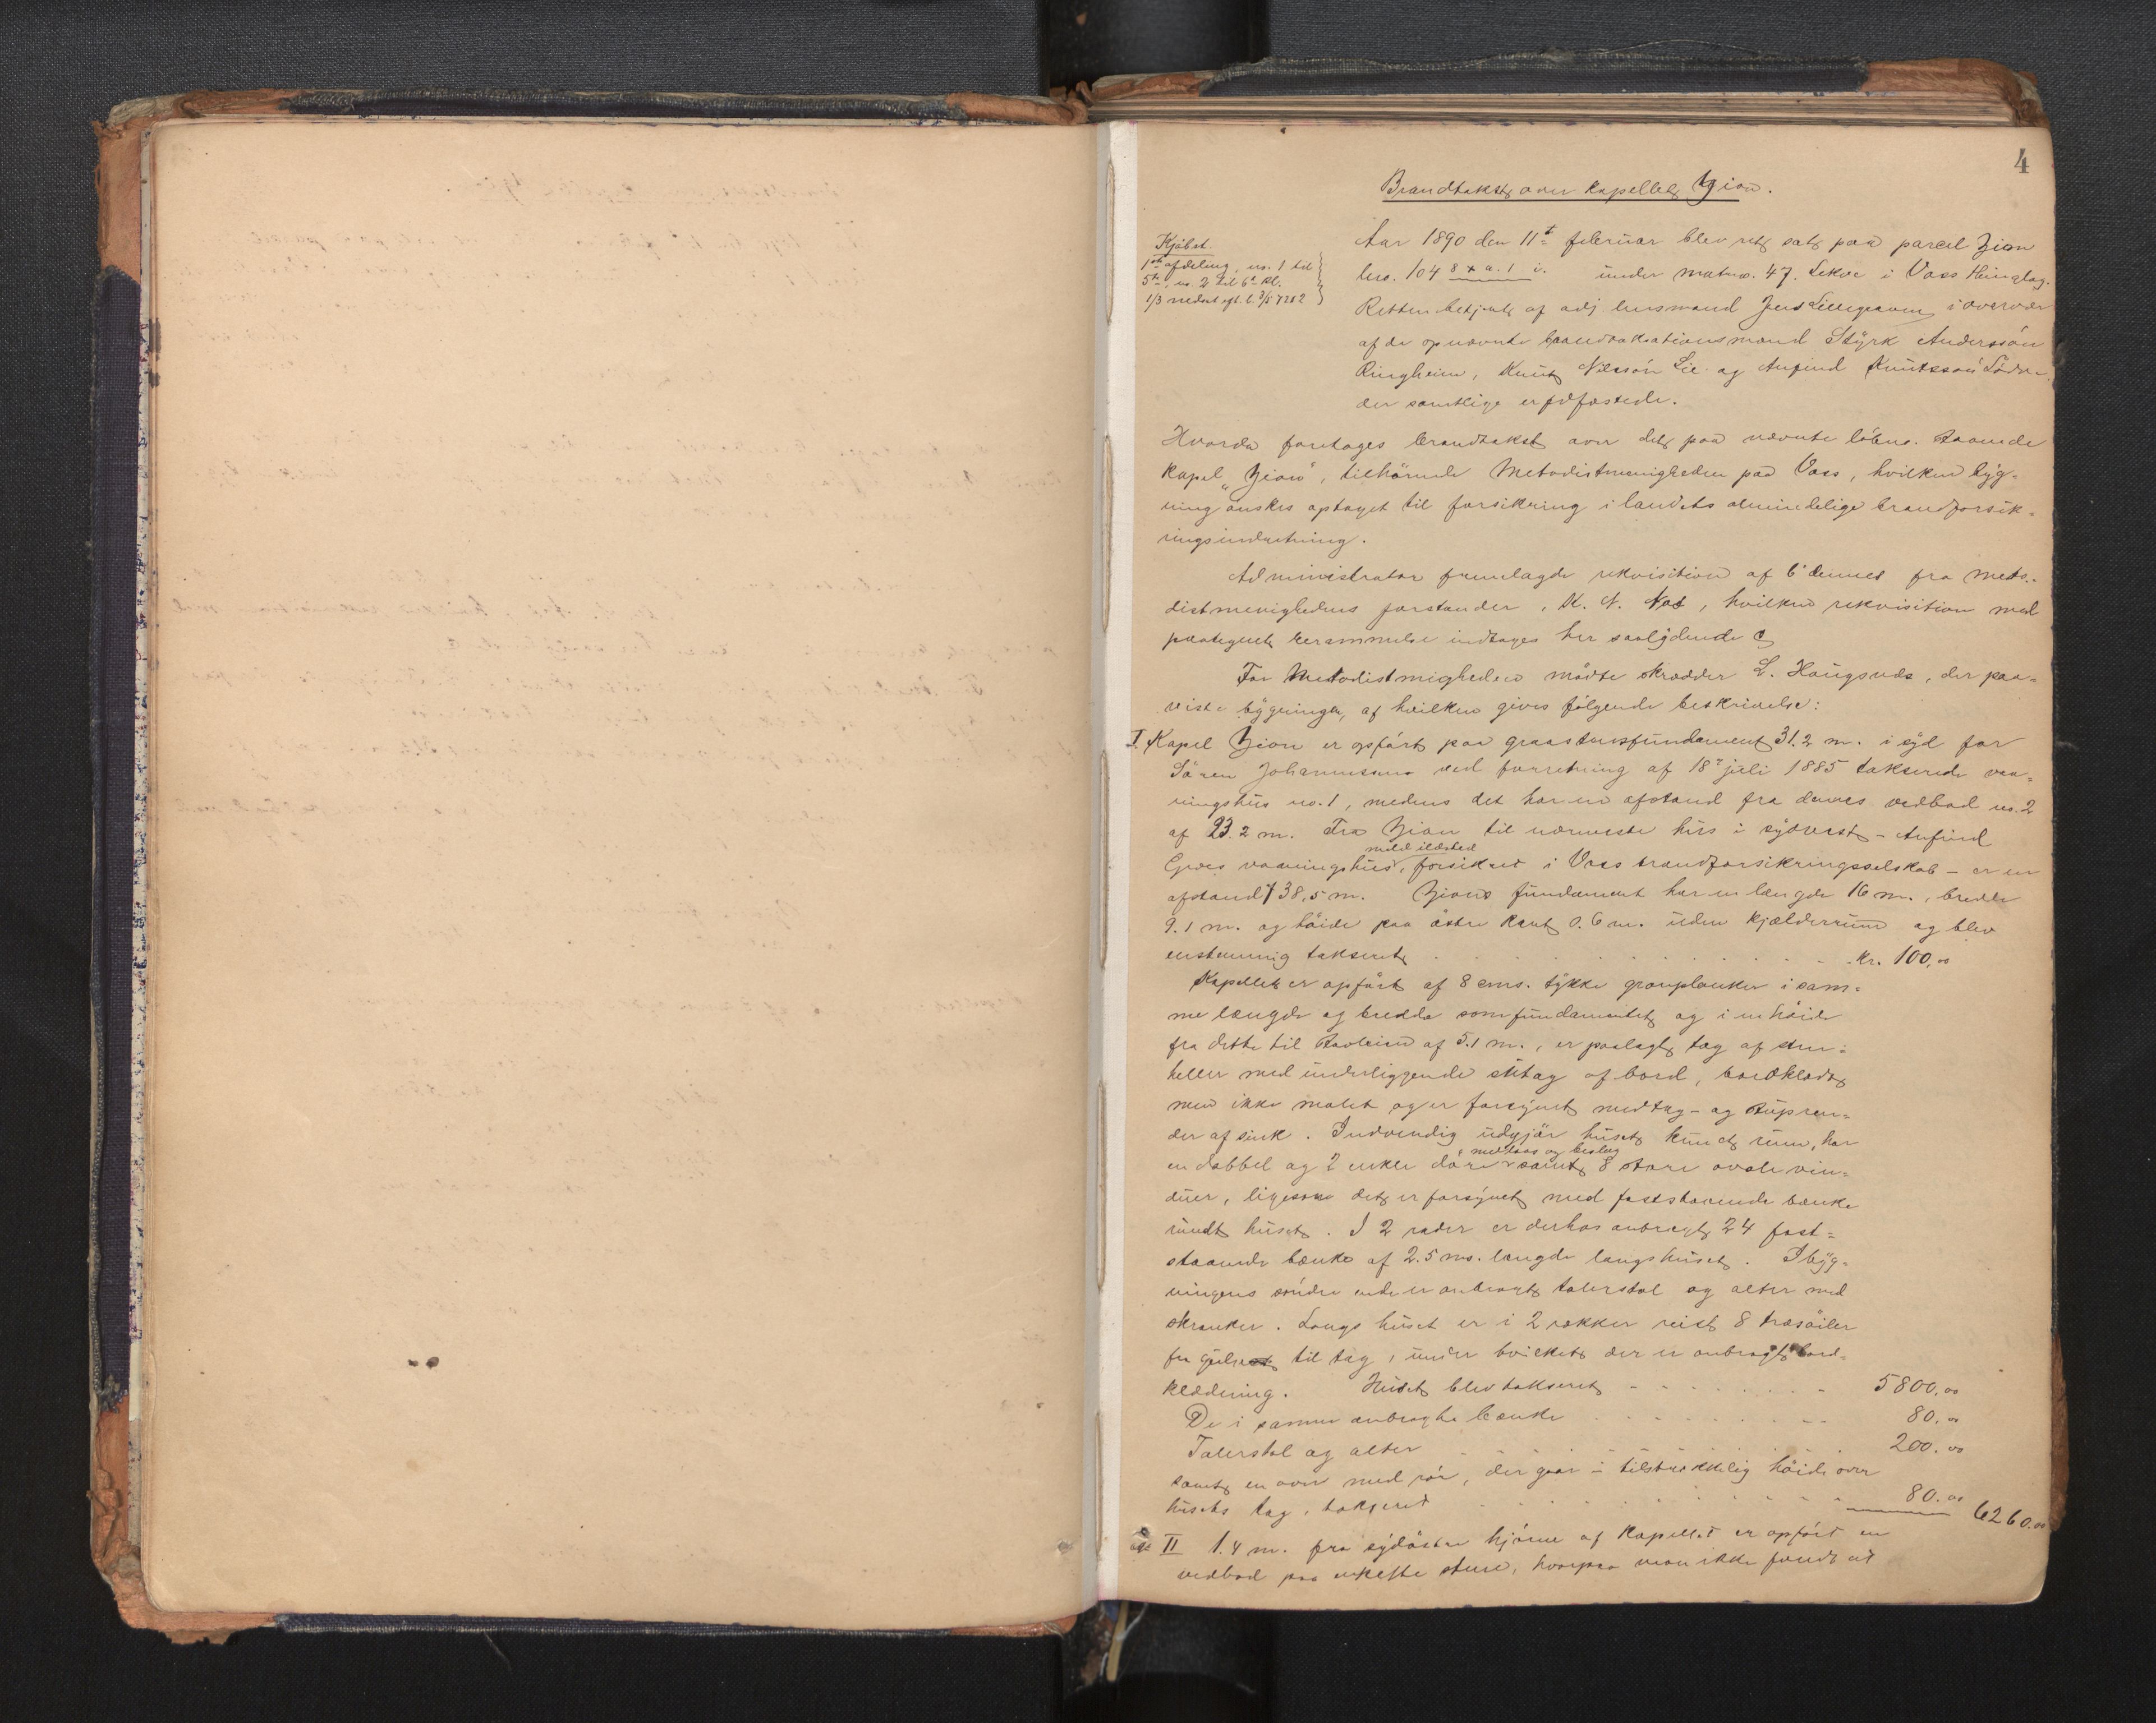 4
Brandtakst over kapellet Zion.
Kjøbet.
1ste afdeling, no. 1 til
5te, no. 2 til 6te kl.
1/3 nedsat
Aar 1890 den 11te februar blev ret sat paa parcel Zion
løbno. 104 8 + a. 1 i. under matrno. 47. Lekve i Voss thinglag.
Retten betjent af adj. lensmand Jens Lillegraven i overvær
af de opnævnte brandtaksationsmænd Styrk Andersson
Ringheim, Knut Nilsson Lie og Anfind Knutsson
der samtlige er edfæstede.
Hvorda foretages brandtakst over det paa nævnte løbno. staaende
kapel "Zion", tilhørende Metodistmenigheden paa Voss, hvilken byg-
ning ønskes optaget til forsikring i landets almindelige brandforsik-
ringsindretning.
Administrator fremlagde rekvisition af 6' dennes fra meto-
distmenighedens forstander, K. N. , hvilken rekvisition med
paategnet berammelse indtages her saalydende
For Metodistmigheden mødte skrædder L. Haugsvds, der paa-
viste bygningen, af hvilken gives følgende beskrivelse:
I. Kapel Zion er opført paa graastensfundament 31.2 m. i syd for
Sören Johannesens ved forretning af 18de juli 1885 takserede vaa-
ningshus no. 1, medens det har en afstand fra dennes vedbod no. 2
af 23.2 m. Fra Zion til nærmeste hus i sydvest - Anfind
med ildsted
Gjoes vaaningshus, forsikret i Voss brandforsikringsselskab - er en
afstand 38,5 m. Zions fundament har en længde 16 m., bredde
9.1 m. og høide paa østre kant 0.6 m. uden kjælderrum og blev
enstemmig takseret . . . kr. 100,00
Kapellet er opført af 8 cms. tykke granplanker i sam-
me længde og bredde som fundamentet og i en høide
fra dette til stavleien af 5.1 m., er paalagt tag af sten-
heller med underliggende sutag af bord, bordklædt
men ikke malet og er forsynet med tag- og stuprender
af sink. Indvendig udgjør huset kun et rum, har
med laas og beslag
en dobbel og 2 enkle døre samt 8 store ovale vin-
duer, ligesom det er forsynet med faststaaende bænke
rundt huset. I 2 rader er derhos anbragt 24 fast-
staaende bænke af 2.5 ms. længde langs huset. I byg-
ningens søndre ende er anbragt talerstol og alter med
skranker. Langs huset er i 2 rækker reist 8 træsøiler
fra gulvet til tag, under hvilket der er anbragt bord-
klædning. Huset blev takseret - - - 5800,00
De i samme anbragte bænke . . . 80,00
Talerstol og alter . . . 200.00
samt en ovn med rør, der gaar i tilstrækkelig høide over
husets tag, takseret . . . 80.00
6260.00
II 1.4 m. fra sydøstre hjørne af kapellet er opført en
vedbod paa enkelte stene, hvorpaa man ikke fandt at